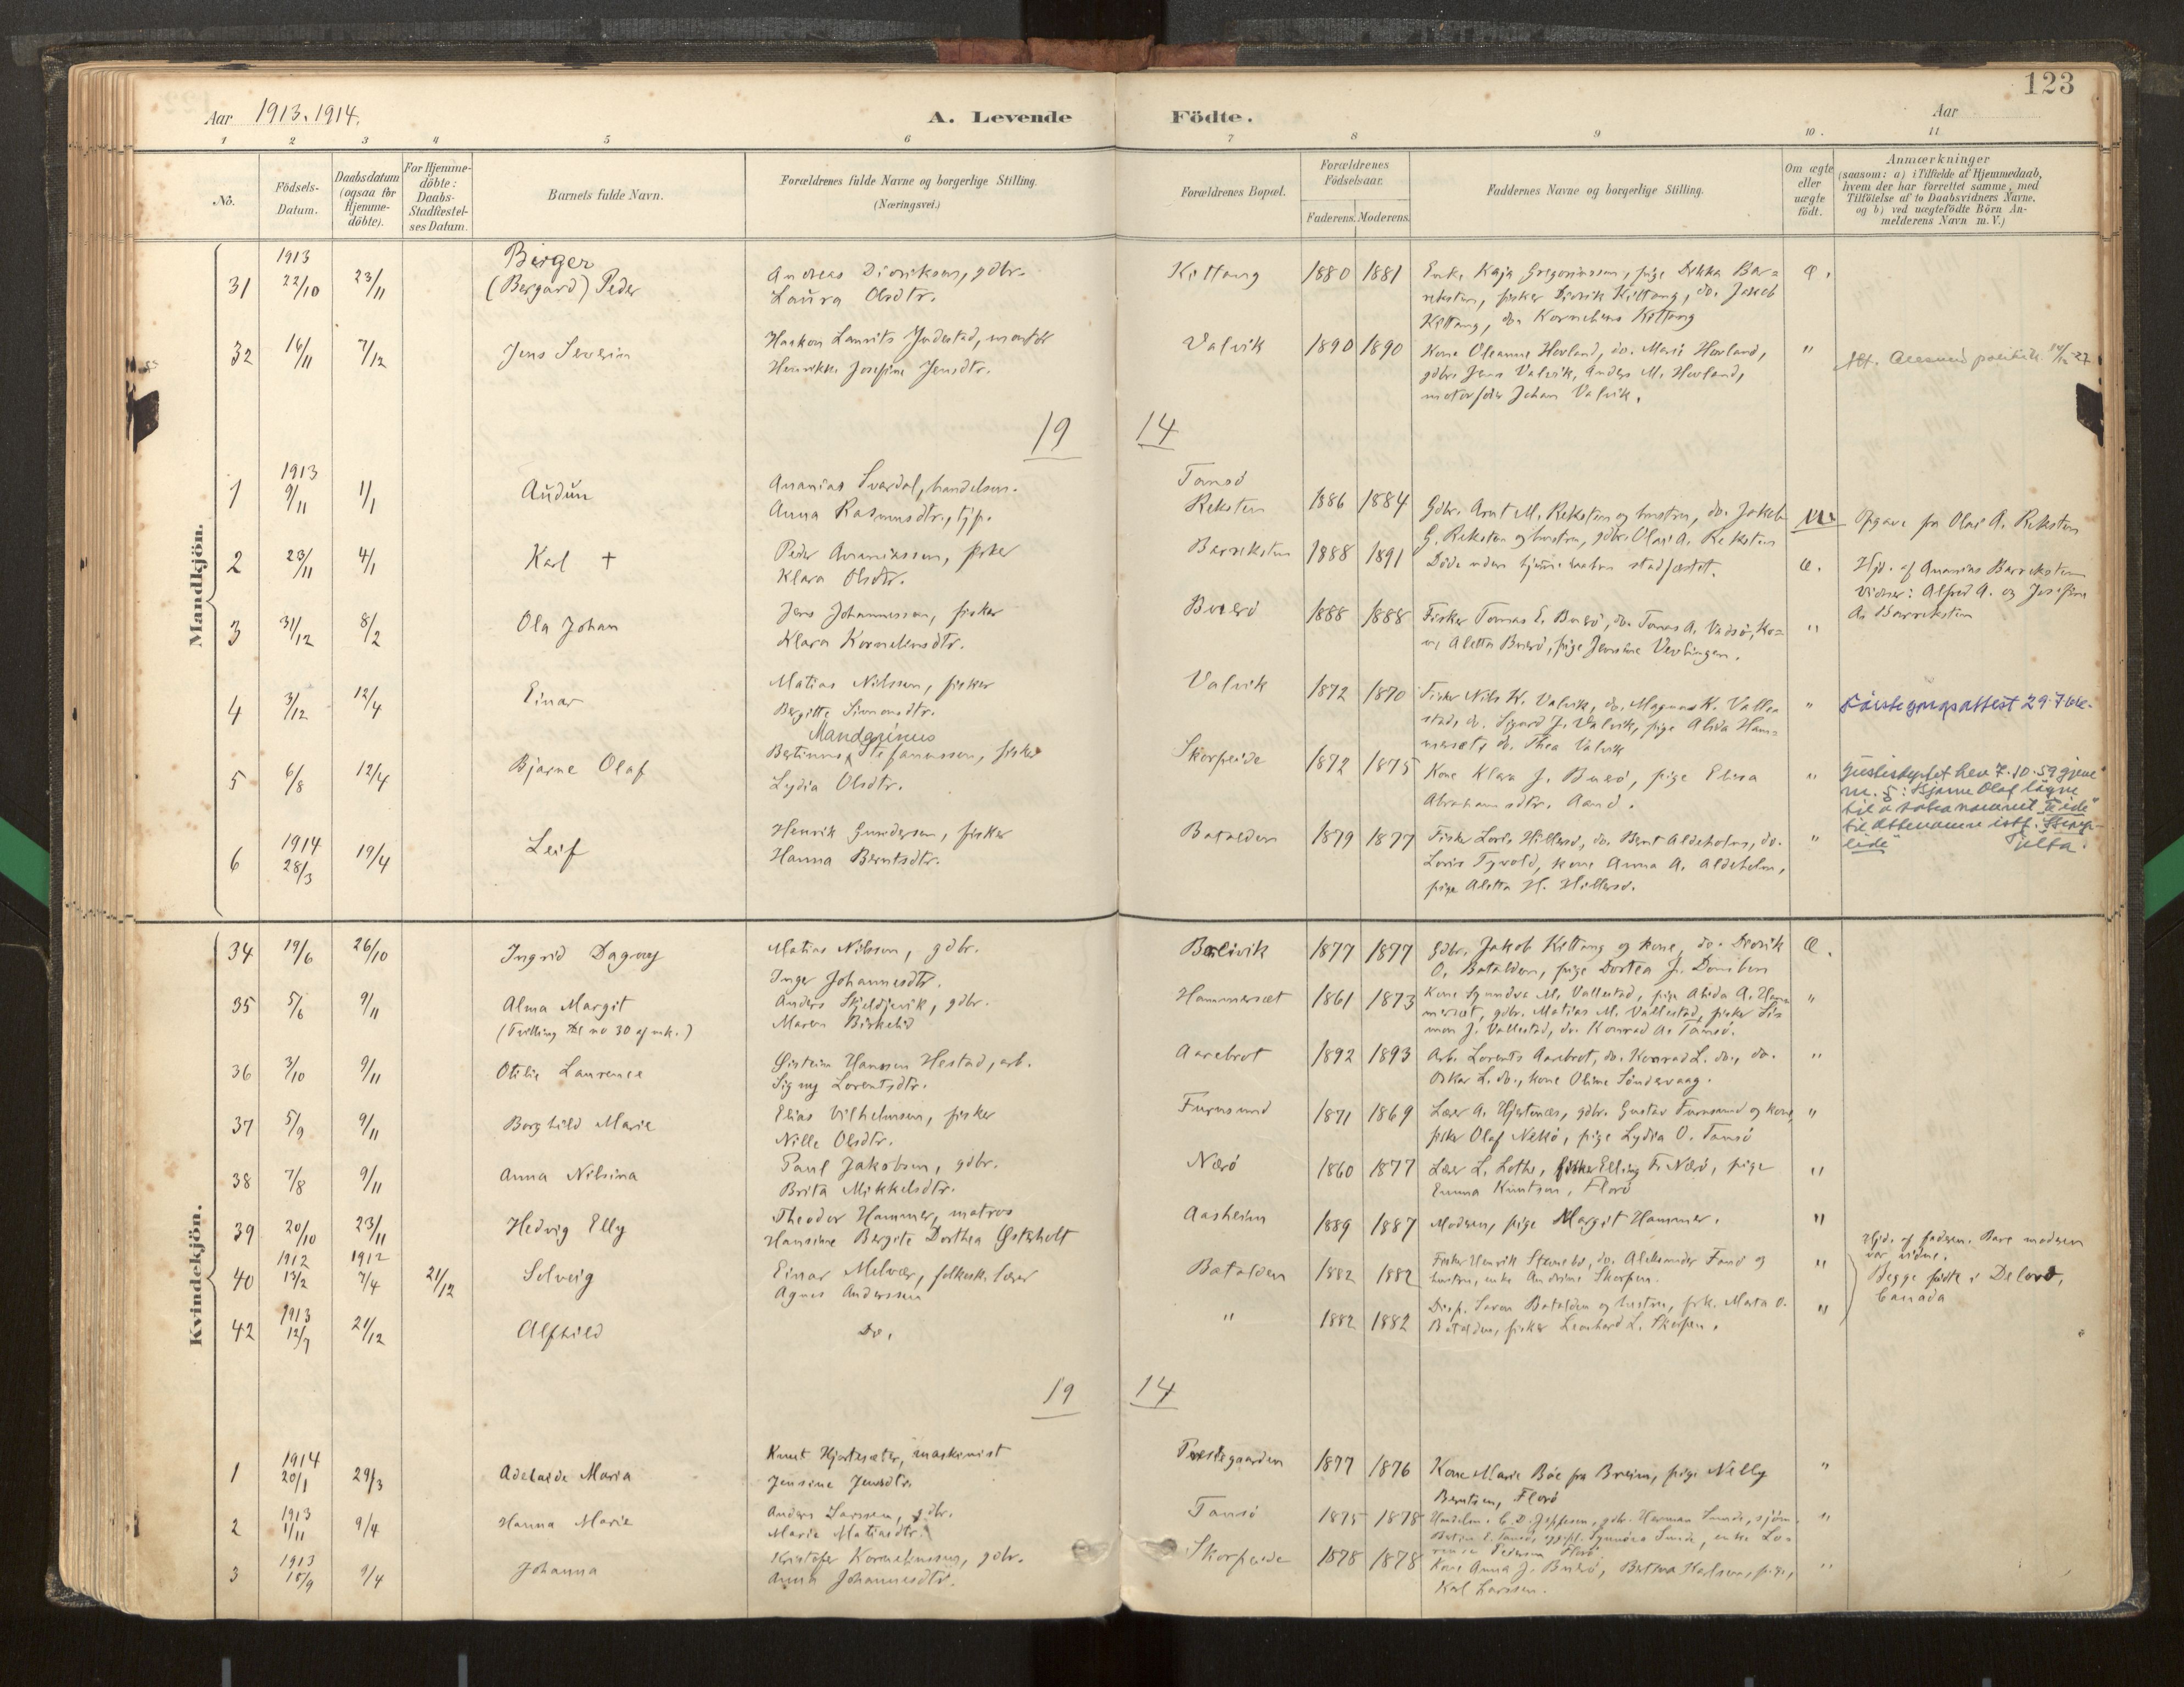 123
Aar 1913. 1914.
A. Levende Födte.
Aar
1 2 3 4 5 6 7 8 9 10. 11
No.
Födsels-
Datum.
Daabsdatum
(ogsaa for
Hjemme-
döbte).
For Hjemme-
döbte:
Daabs-
Stadfæstel-
ses Datum.
Barnets fulde Navn.
Forældrenes fulde Navne og borgerlige Stilling.
(Næringsvei.)
Forældrenes Bopæl.
Forældrenes
Födselsaar.
Faderens. Moderens.
Faddernes Navne og borgerlige Stilling.
Om ægte
eller
uægte
födt.
Anmærkninger
(saasom: a) i Tilfælde af Hjemmedaab,
hvem der har forrettet samme, med
Tilföielse af to Daabsvidners Navne,
og b) ved uægtefödte Börn An-
melderens Navn m. V.)
Mandkjön.
31
1913
22/10
23/11
Birger
(Bergard) Peder
Andreas Didriksen, gdbr.
Laura Olsdtr.
Kittang
1880 1881
Enke Kaja Gregoriussen, pige Drikka Bar=
reksten, fisker Didrik Kittang, do. Jakob
Kittang, do. Kornelius Kittang
Æ.
32
16/11
7/12
Jens Severin
Haakon Laurits Indestad, montör
Henrikke Josefine Jensdtr.
Valvik
1890 1890
Kone Oleanne Hovland, do. Marie Hovland,
gdbr. Jens Valvik, Anders M. Hovland,
motorförer Johan Valvik.
"
Att. Aalesund politik.
19 14
1
1913
9/11
1/1
Audun
Ananias Svardal, handelsm.
Anna Rasmusdtr., tjp.
Tansö
Reksten
1886 1884
Gdbr. Arnt M. Reksten og hustru, do. Jakob
G. Reksten og hustru, gdbr. Olai A. Reksten
Opgave fra Olai A. Reksten
2
23/11
4/1
Karl +
Peder Ananiassen, fisker
Klara Olsdtr.
Barreksten
1888 1891
Döde uden hjemmedaaben stadfæstet.
Æ.
Hjd. af Ananias Barreksten
Vidner: Alfred A. og Josefine
A. Barreksten
3
31/12
8/2
Ola Johan
Jens Johannessen, fisker
Klara Korneliusdtr.
Buerö
1888 1888
Fisker Tomas E. Buerö, do. Tomas A. Vadsö, Ko=
ne Aletta Buerö, pige Jensine Vevlingen.
"
4
3/12
12/4
Einar
Matias Nilssen, fisker
Bergitte Simonsdtr.
Valvik
1872 1870
Fisker Nils K. Valvik, do. Magnus K. Valle=
stad, do. Sigurd J. Valvik, pige Alida Ham=
mersæt, do. Thea Valvik
"
Förstegangsattest 29.7.
5
6/8
12/4
Bjarne Olaf
Mandarinus
Bertinus Stefanussen, fisker
Lydia Olsdtr.
Skorpeide
1872 1875
Kone Klara J. Buerö, pige Elisa
Abrahamsdtr. Aanö.
"
Justisdeptet hev 7.10.59 gjeve
nr. 5: Bjarne Olaf löyve
til å taka namnet "Eide"
til ættenamn istf. Skorp-
eide
Gjelta.
6
1914
28/3
19/4
Leif
Henrik Gundersen, fisker
Hanna Berntsdtr.
Batalden
1879 1877
Fisker Loris Hillersö, do. Bent Aldeholm, do.
Loris Tyvold, kone Anna A. Aldeholm,
pige Aletta H. Hillersö.
"
Kvindekjön.
34
19/6
26/10
Ingrid Dagny
Matias Nilssen, gdbr.
Inger Johannesdtr.
1877 1877
Gdbr. Jakob Kittang og kone, do. Didrik
O. Batalden, pige Dortea J. Domben
Æ.
35
5/6
9/11
Alma Margit
(Tvilling til no 30 af mk.)
Anders Skjeldjevik, gdbr.
Maren Birkelid
Hammersæt
1861 1873
Kone Synneva M. Vallestad, pige Alida A. Ham=
mersæt, gdbr. Matias M. Vallestad, fisker Si=
mon J. Vallestad, do. Konrad A. Tansö.
"
36
3/10
9/11
Otilie Laurence
Öistein Hanssen Hestad, arb.
Signy Lorentsdtr.
Aarebrot
1892 1893
Arb. Lorents Aarebrot, do. Konrad L. do., do.
Oskar L. do., kone Oline Söndervaag.
"
37
5/9
9/11
Borghild Marie
Elias Vilhelmsen, fisker
Nille Olsdtr.
Furusund
1871 1869
Lærer A. Hjertenæs, gdbr. Gustav Furusund og kone,
fisker Olaf Nekkö, pige Lydia O. Tansö
"
38
7/8
9/11
Anna Nilsina
Paul Jakobsen, gdbr.
Brita Mikkelsdtr.
Nærö
1860 1877
Lærer L. Lothe, fisker Elling F. Nærö, pige
Emma Knutsen, Florö
"
39
20/10
23/11
Hedvig Elly
Theodor Hammer, matros
Hansine Bergite Dorthea Østerholt
Aasheim
1889 1887
Moderen, pige Margit Hammer.
"
40
1912
13/2
1912
7/4
21/12
Solveig
Einar Melvær, folkesk. lærer
Agnes Anderssen
Batalden
1882 1882
Fisker Henrik Stensbö, do. Aleksander Fanö og
hustru, enke Andrine Skorpen.
"
Hjd. af faderen. Bare moderen
var vidne.
Begge födte i Deloro,
Canada
42
1913
12/7
21/12
Alfhild
Do.
"
1882 1882
Disp. Søren Batalden og hustru, frk. Marta O.
Batalden, fisker Leonhard L. Skorpen.
"
19 14
1
1914
20/1
29/3
Adelaide Maria
Knut Hjortesæter, maskinist
Jensine Jensdtr.
Prestegaarden
1877 1876
Kone Marie Böe fra Breim, pige Nelly
Berntsen, Florö
"
2
1913
1/11
9/4
Hanna Marie
Anders Larssen, gdbr.
Marie Matiasdtr.
Tansö
1875 1878
Handelsm. C. D. Jeppesen, gdbr. Herman Sunde, sjöm.
Synnöva Sunde, enke Lo=
Pedersen Florö
"
3
1913
15/9
9/4
Johanna
Kristofer Korneliussen, gdbr.
Anna Johannesdtr.
Skorpeide
1878 1878
Kone Anna J. Buerö, Bertina Karlsen, pige,
Karl Larssen.
"